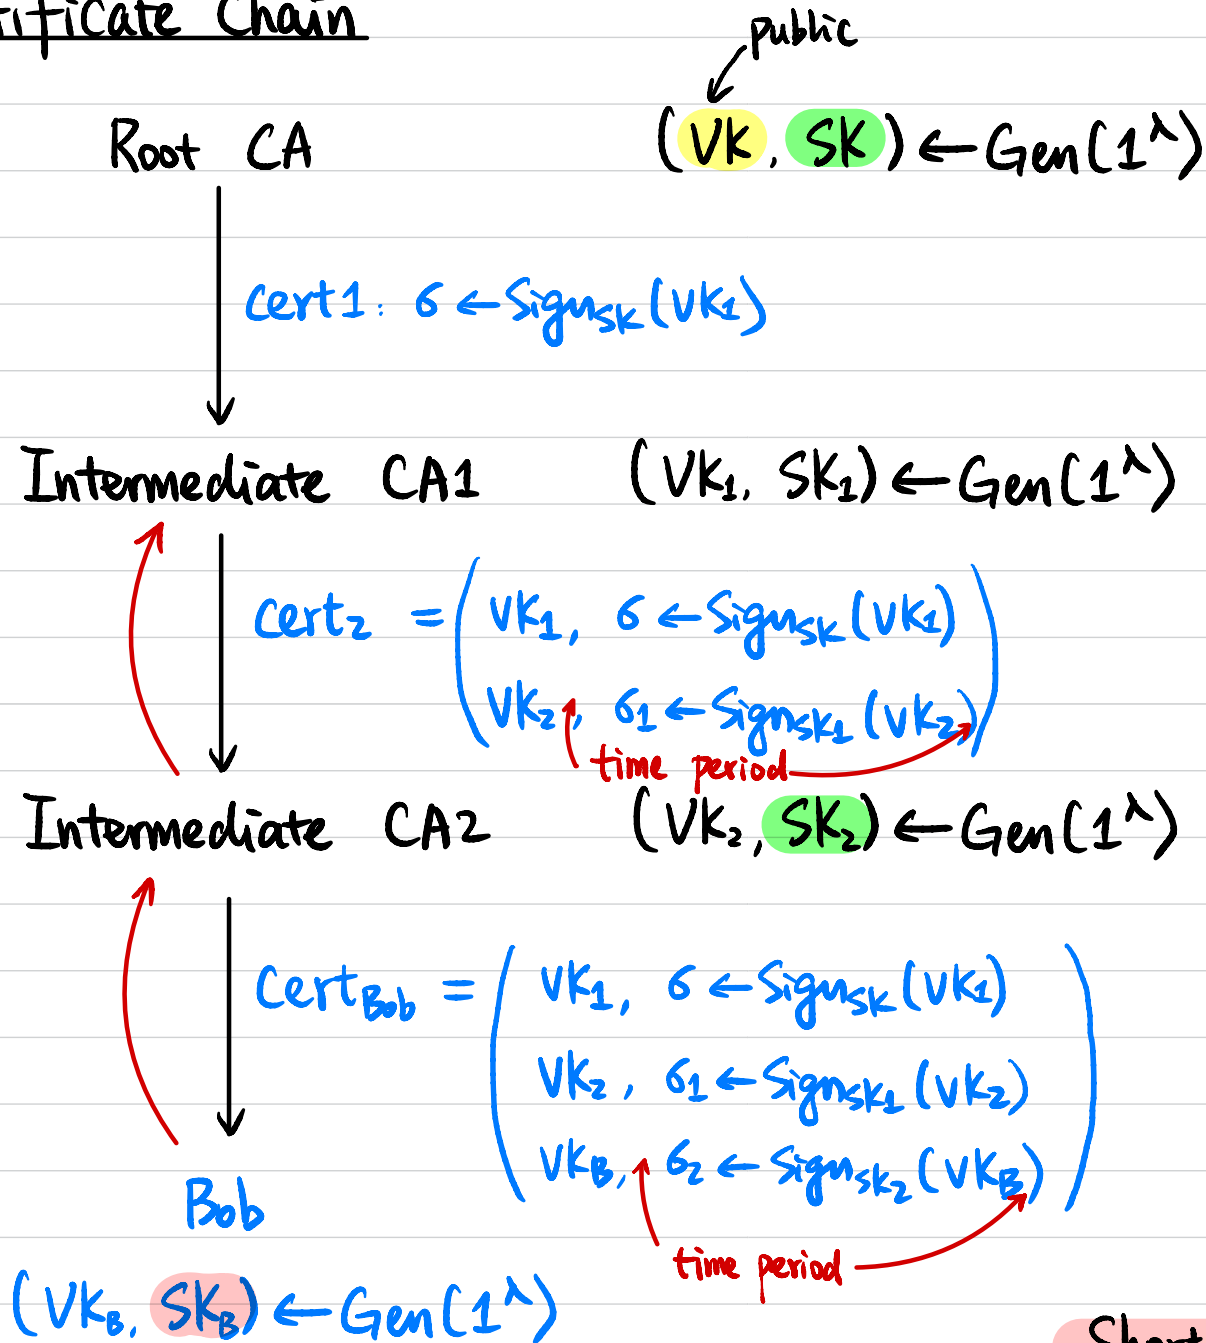 tificate Chain
public
Root CA (VK, SK) ← Gen(1^λ)
cert1: σ ← Sign_SK(VK_1)
Intermediate CA1 (VK_1, SK_1) ← Gen(1^λ)
cert_2 = ( VK_1, σ ← Sign_SK(VK_1)
VK_2, σ_1 ← Sign_SK_1(VK_2) )
time period
Intermediate CA2 (VK_2, SK_2) ← Gen(1^λ)
Cert_Bob = ( VK_1, σ ← Sign_SK(VK_1)
VK_2, σ_1 ← Sign_SK_1(VK_2)
VK_B, σ_2 ← Sign_SK_2(VK_B) )
Bob
time period
(VK_B, SK_B) ← Gen(1^λ)